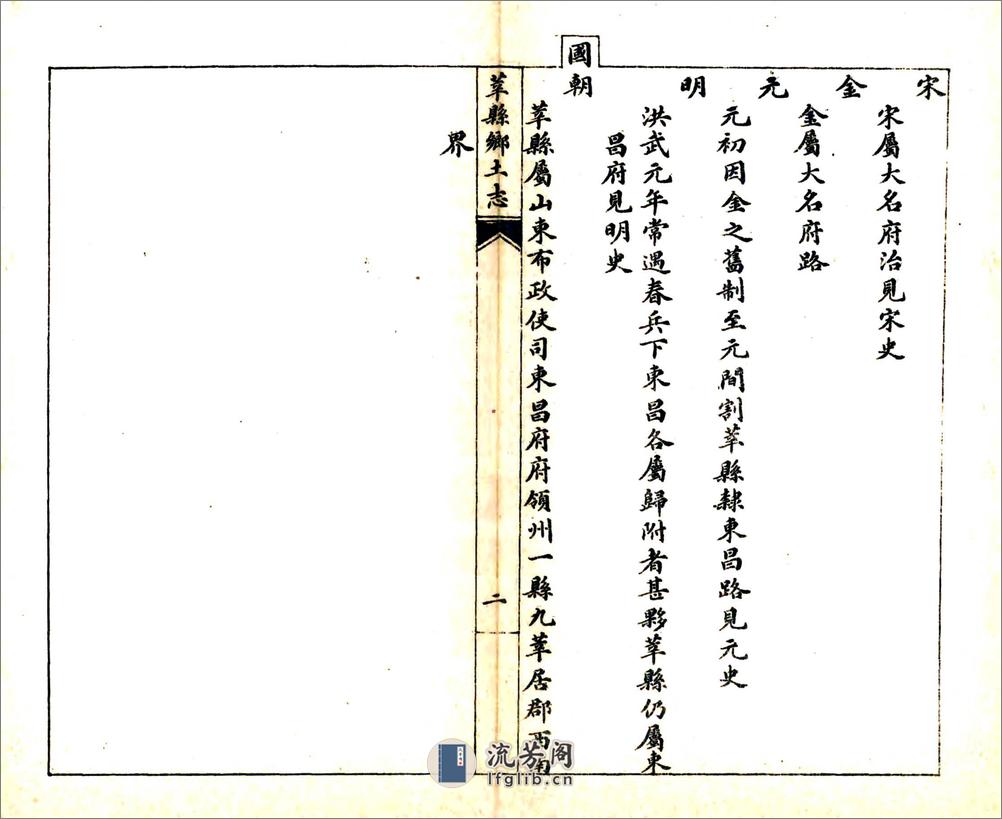 宋
宋屬大名府治見宋史
金
金屬大名府路
元
元初因金之舊制至元間割莘縣隸東昌路見元史
明
洪武元年常遇春兵下東昌各屬歸附者甚夥莘縣仍屬東
昌府見明史
國朝
莘縣屬山東布政使司東昌府府領州一縣九莘居郡西南
界
莘縣鄉土志
二
流芳阁
lfglib.cn